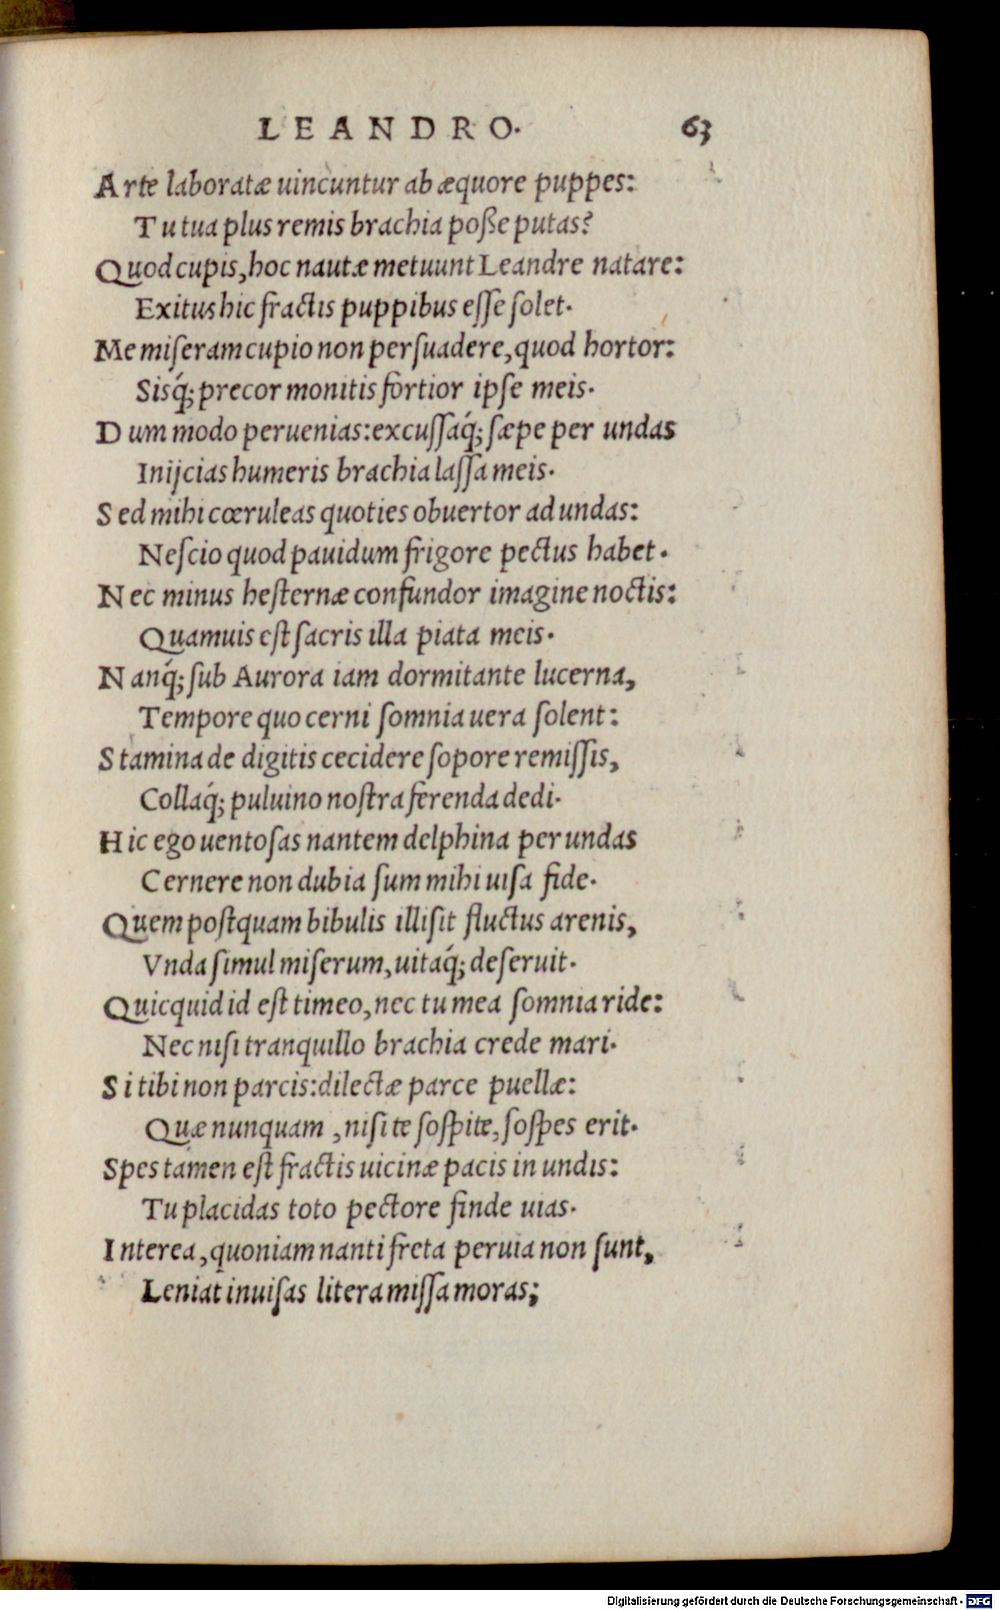 LEANDRO. 63
Arte laboratæ uincuntur ab æquore puppes:
Tu tua plus remis brachia poße putas?
Quod cupis, hoc nautæ metuunt Leandre natare:
Exitus hic fractis puppibus eſſe ſolet.
Me miſeram cupio non perſuadere, quod hortor:
Sisq́; precor monitis fortior ipſe meis.
Dum modo peruenias: excuſſaq́; ſæpe per undas
Inijcias humeris brachia laſſa meis.
Sed mihi cœruleas quoties obuertor ad undas:
Neſcio quod pauidum frigore pectus habet.
Nec minus heſternæ confundor imagine noctis:
Quamuis eſt ſacris illa piata meis.
Nanq́; ſub Aurora iam dormitante lucerna,
Tempore quo cerni ſomnia uera ſolent:
Stamina de digitis cecidere ſopore remiſſis,
Collaq́; puluino noſtra ferenda dedi.
Hic ego uentoſas nantem delphina per undas
Cernere non dubia ſum mihi uiſa fide.
Quem poſtquam bibulis illiſit fluctus arenis,
Vnda ſimul miſerum, uitaq́; deſeruit.
Quicquid id eſt timeo, nec tu mea ſomnia ride:
Nec niſi tranquillo brachia crede mari.
Si tibi non parcis: dilectæ parce puellæ:
Quæ nunquam, niſi te ſoſpite, ſoſpes erit.
Spes tamen eſt fractis uicinæ pacis in undis:
Tu placidas toto pectore finde uias.
Interea, quoniam nanti freta peruia non ſunt,
Leniat inuiſas litera miſſa moras;
Digitalisierung gefördert durch die Deutsche Forschungsgemeinschaft - DFG